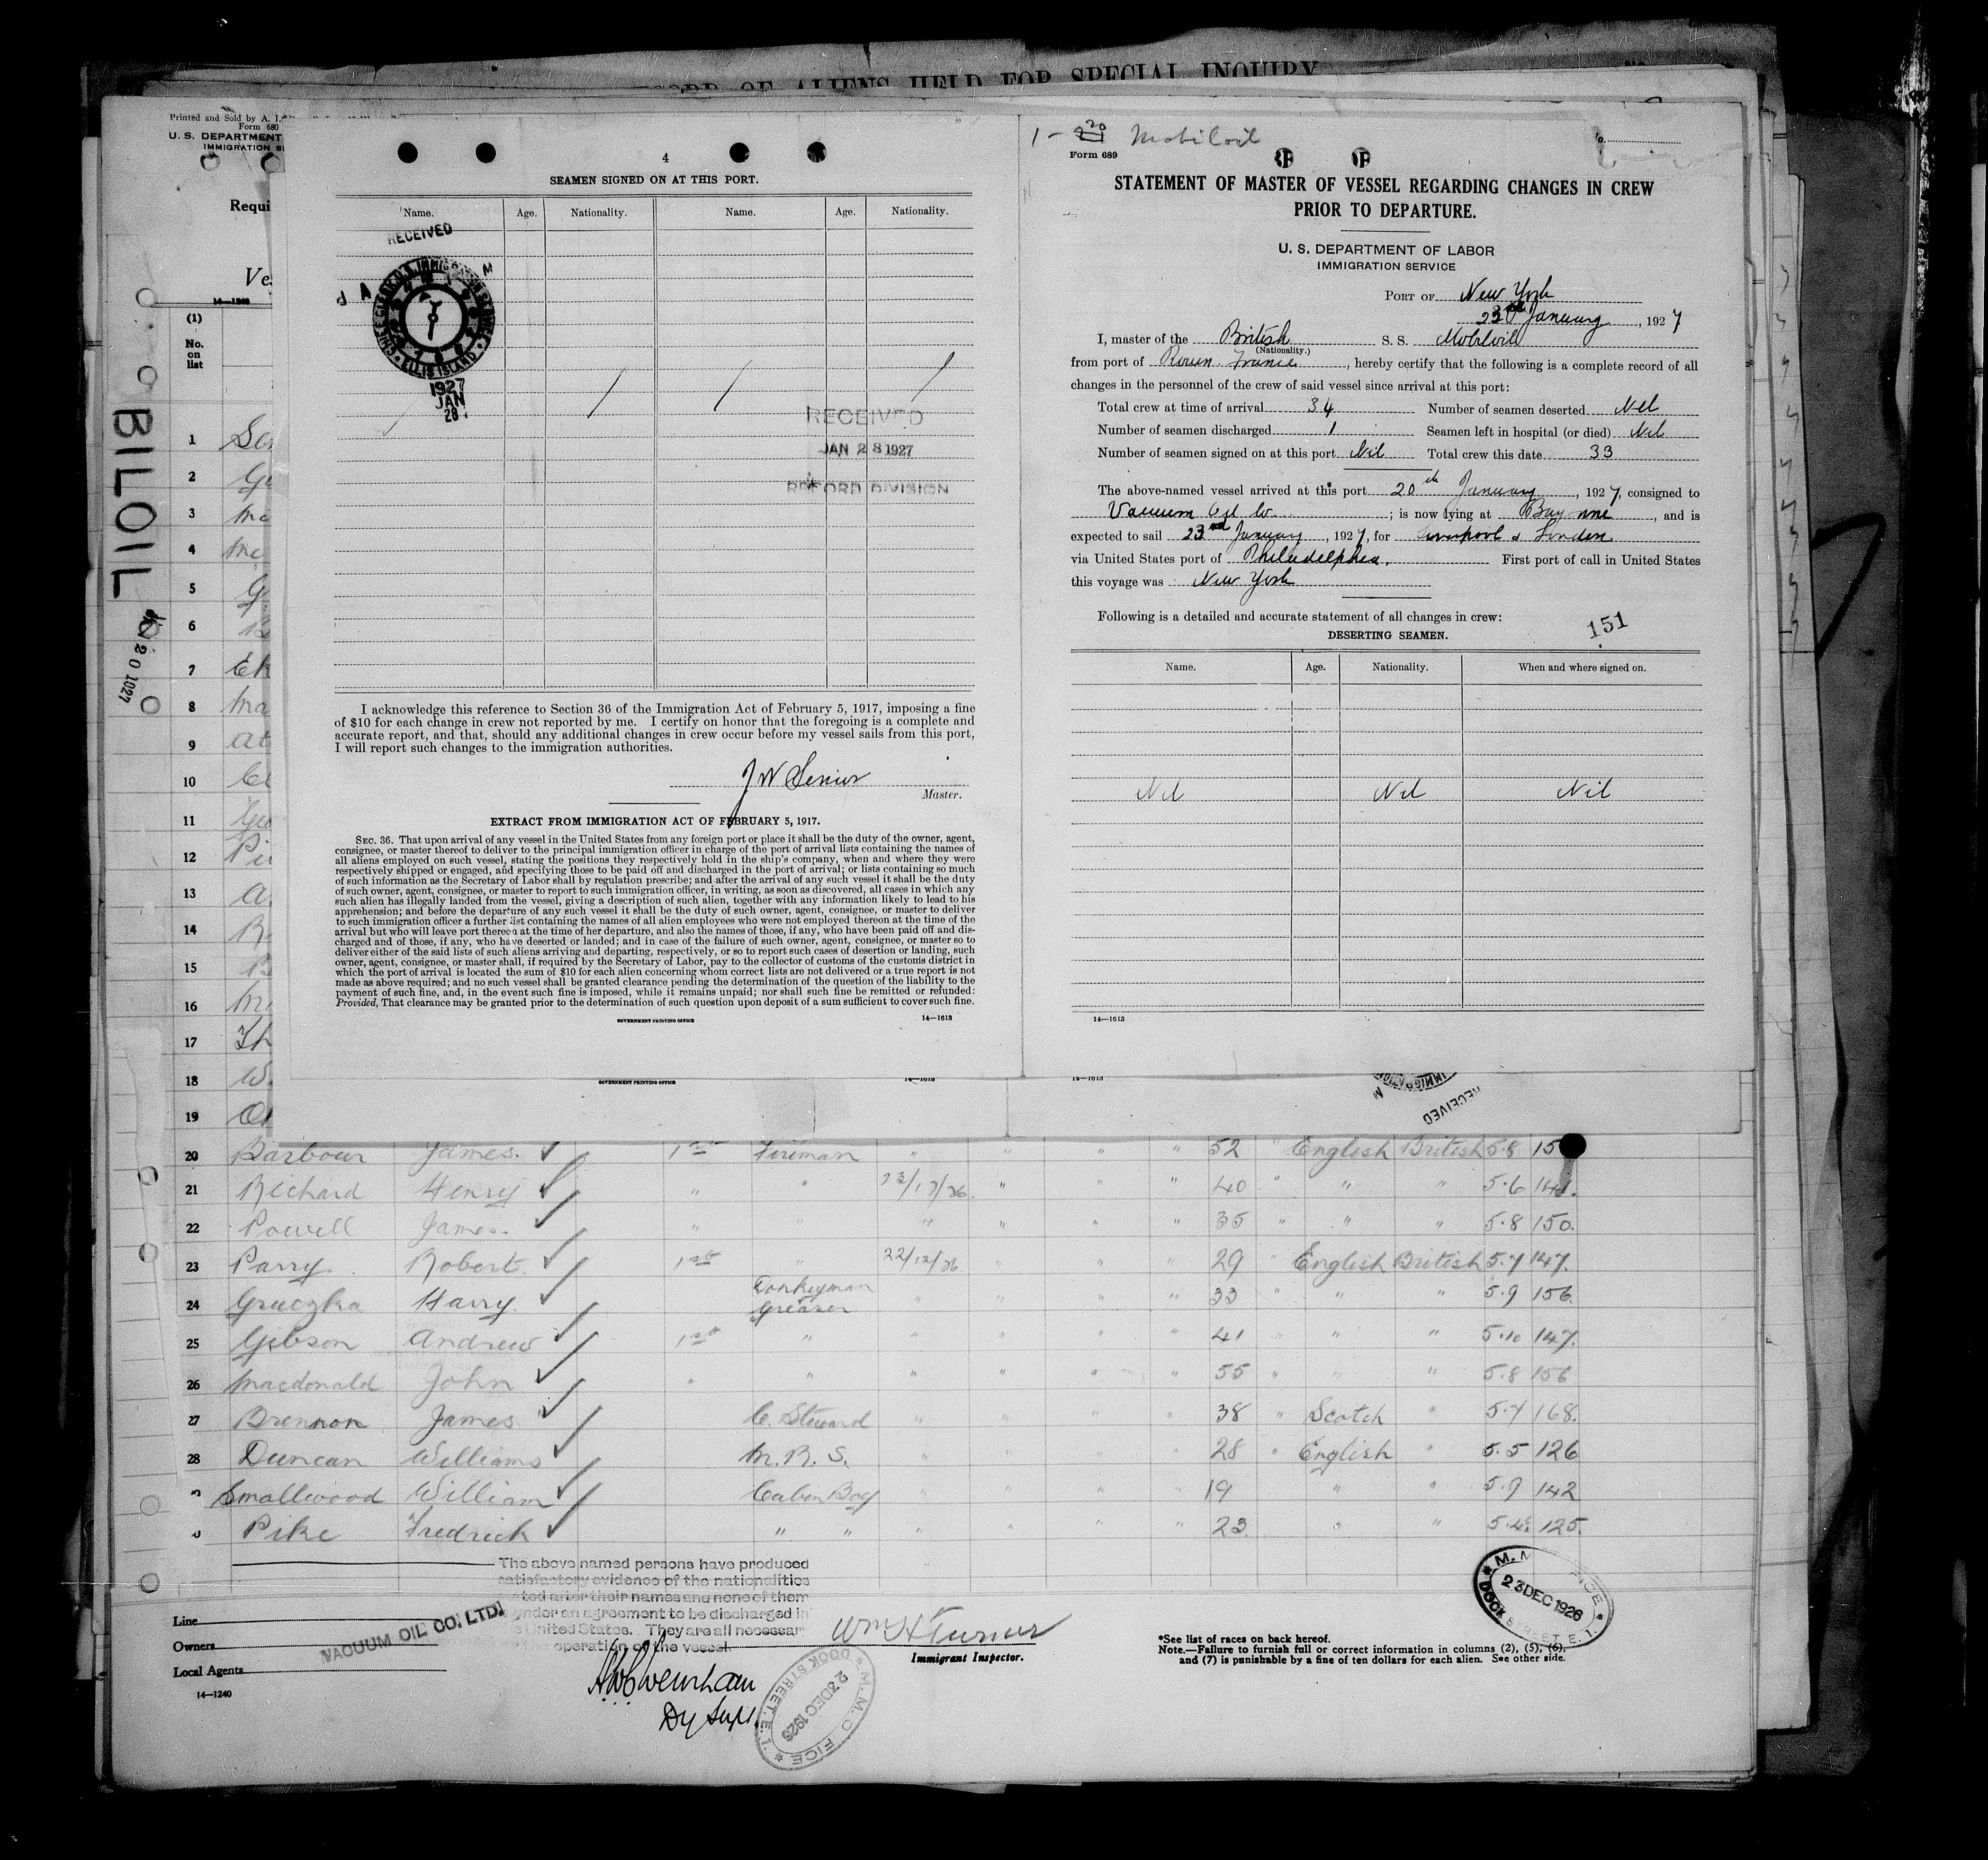 RECORD OF ALIENS HELD FOR SPECIAL INQUIRY
Printed and Sold by A. I.
Form 680
U. S. DEPARTMENT
IMMIGRATION SE
Requi
Ves
14—1240
(1)
No.
on
list
BILOIL
JAN 20 1927
1
2
3
4
5
6
7
8
9
10
11
12
13
14
15
16
17
18
19
4
SEAMEN SIGNED ON AT THIS PORT.
Name. Age. Nationality. Name. Age. Nationality.
RECEIVED
ELLIS ISLAND
1927
JAN
28
RECEIVED
JAN 28 1927
RECORD DIVISION
I acknowledge this reference to Section 36 of the Immigration Act of February 5, 1917, imposing a fine
of $10 for each change in crew not reported by me. I certify on honor that the foregoing is a complete and
accurate report, and that, should any additional changes in crew occur before my vessel sails from this port,
I will report such changes to the immigration authorities.
J W Senior
Master.
EXTRACT FROM IMMIGRATION ACT OF FEBRUARY 5, 1917.
SEC. 36. That upon arrival of any vessel in the United States from any foreign port or place it shall be the duty of the owner, agent,
consignee, or master thereof to deliver to the principal immigration officer in charge of the port of arrival lists containing the names of
all aliens employed on such vessel, stating the positions they respectively hold in the ship's company, when and where they were
respectively shipped or engaged, and specifying those to be paid off and discharged in the port of arrival; or lists containing so much
of such information as the Secretary of Labor shall by regulation prescribe; and after the arrival of any such vessel it shall be the duty
of such owner, agent, consignee, or master to report to such immigration officer, in writing, as soon as discovered, all cases in which any
such alien has illegally landed from the vessel, giving a description of such alien, together with any information likely to lead to his
apprehension; and before the departure of any such vessel it shall be the duty of such owner, agent, consignee, or master to deliver
to such immigration officer a further list containing the names of all alien employees who were not employed thereon at the time of the
arrival but who will leave port thereon at the time of her departure, and also the names of those, if any, who have been paid off and dis-
charged and of those, if any, who have deserted or landed; and in case of the failure of such owner, agent, consignee, or master so to
deliver either of the said lists of such aliens arriving and departing, respectively, or so to report such cases of desertion or landing, such
owner, agent, consignee, or master shall, if required by the Secretary of Labor, pay to the collector of customs of the customs district in
which the port of arrival is located the sum of $10 for each alien concerning whom correct lists are not delivered or a true report is not
made as above required; and no such vessel shall be granted clearance pending the determination of the question of the liability to the
payment of such fine, and, in the event such fine is imposed, while it remains unpaid; nor shall such fine be remitted or refunded:
Provided, That clearance may be granted prior to the determination of such question upon deposit of a sum sufficient to cover such fine.
GOVERNMENT PRINTING OFFICE 14—1613
1 - 20 Mobiloil
Form 689
STATEMENT OF MASTER OF VESSEL REGARDING CHANGES IN CREW
PRIOR TO DEPARTURE.
U. S. DEPARTMENT OF LABOR
IMMIGRATION SERVICE
PORT OF New York
23rd January, 1927
I, master of the British S. S. Mobiloil
(Nationality.)
from port of Rouen France, hereby certify that the following is a complete record of all
changes in the personnel of the crew of said vessel since arrival at this port:
Total crew at time of arrival 34 Number of seamen deserted Nil
Number of seamen discharged 1 Seamen left in hospital (or died) Nil
Number of seamen signed on at this port Nil Total crew this date 33
The above-named vessel arrived at this port 20th January, 1927, consigned to
Vacuum Oil Co.; is now lying at Bayonne, and is
expected to sail 23rd January, 1927, for Liverpool & London
via United States port of Philadelphia. First port of call in United States
this voyage was New York
Following is a detailed and accurate statement of all changes in crew:
151
DESERTING SEAMEN.
Name. Age. Nationality. When and where signed on.
Nil Nil Nil
14—1613
GOVERNMENT PRINTING OFFICE 14—1613 14—1613
RECEIVED
20 Barbour James. 1st Fireman " " " " 52 " English British 5.8 15
21 Richard Henry " " 23/12/26 " " " 40 " " " 5.6 141.
22 Powell James. " " " " " " 35 " " " 5.8 150.
23 Parry Robert. 1st " 22/12/26 " " " 29 " English British 5.7 147.
24 Gruczka Harry. Donkeyman Greaser " " " " 33 " " " 5.9 156.
25 Gibson Andrew 1st " " " " " 41 " " " 5.10 147.
26 Macdonald John " " " " " " 55 " " " 5.8 156
27 Brennon James C. Steward " " " " 38 " Scotch " 5.7 168.
28 Duncan Williams M. R. S. " " " " 28 " English " 5.5 126
Smallwood William Cabin Boy " " " " 19 " " 5.9 142
Pike Fredrick " " " " " " 23 " " 5.4½ 125.
The above named persons have produced
satisfactory evidence of the nationalities
ted after their names and none of them
under an agreement to be discharged in
United States. They are all necessar
the operation of the vessel.
Line
Owners VACUUM OIL CO. LTD.
Local Agents
14—1240
Wm H Turner
Immigrant Inspector.
Dy Supt.
M. M. O FICE
23 DEC 1926
DOCK STREET. E. 1.
*See list of races on back hereof.
Note.—Failure to furnish full or correct information in columns (2), (5), (6),
and (7) is punishable by a fine of ten dollars for each alien. See other side.
M. M. FICE
23 DEC 1926
DOCK STREET. E. 1.